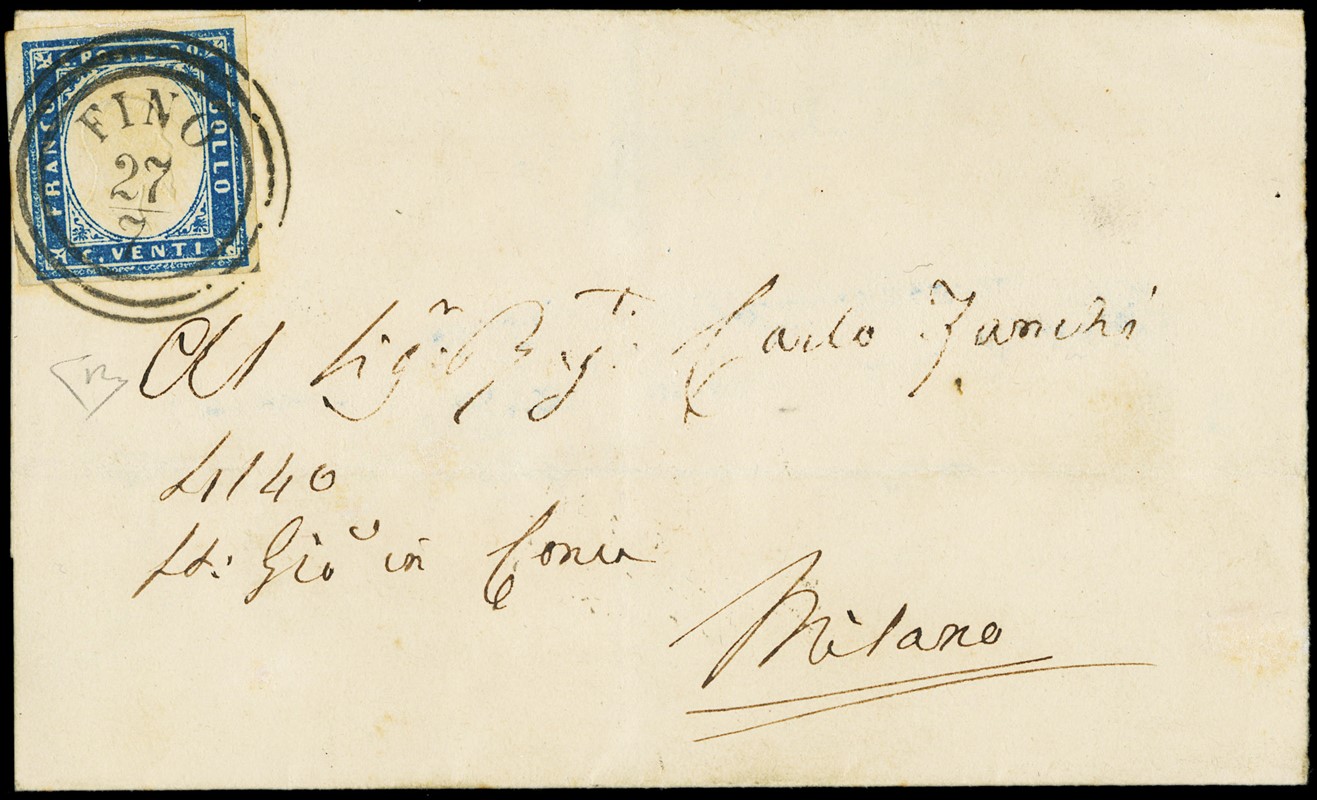 C. POSTE BO
FRANCO
BOLLO
C. VENTI
FINO
27
7
Al Sigr. Ragt. Carlo Zanchi
4140
St: Gio in Conca
Milano